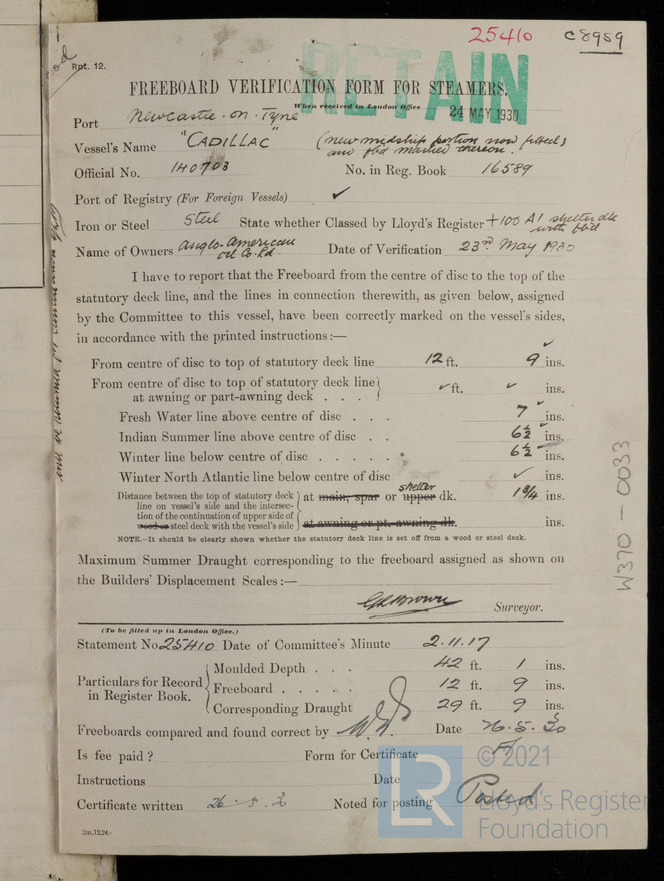 25410
C8959
Rpt. 12.
RETAIN
FREEBOARD VERIFICATION FORM FOR STEAMERS.
When received in London Office 24 MAY 1930
Port Newcastle-on-Tyne
Vessel's Name "CADILLAC" (New midship portion now fitted
and fbd marked thereon.)
Official No. 140703 No. in Reg. Book 16589
Port of Registry (For Foreign Vessels) ✓
Iron or Steel Steel State whether Classed by Lloyd's Register +100 A1 shelter dk
with fbd
Name of Owners Anglo-American
Oil Co. Ltd Date of Verification 23rd May 1930
I have to report that the Freeboard from the centre of disc to the top of the
statutory deck line, and the lines in connection therewith, as given below, assigned
by the Committee to this vessel, have been correctly marked on the vessel's sides,
in accordance with the printed instructions:—
From centre of disc to top of statutory deck line 12 ft. 9 ins.
From centre of disc to top of statutory deck line
at awning or part-awning deck . . . ✓ ft. ✓ ins.
Fresh Water line above centre of disc . . . 7 ins.
Indian Summer line above centre of disc . . 6½ ins.
Winter line below centre of disc . . . . . 6½ ins.
Winter North Atlantic line below centre of disc ✓ ins.
Distance between the top of statutory deck
line on vessel's side and the intersec-
tion of the continuation of upper side of
wood or steel deck with the vessel's side
at main, spar or upper dk. shelter 1¾ ins.
at awning or pt. awning dk. ins.
NOTE.—It should be clearly shown whether the statutory deck line is set off from a wood or steel deck.
Maximum Summer Draught corresponding to the freeboard assigned as shown on
the Builders' Displacement Scales:—
Surveyor.
(To be filled up in London Office.)
Statement No 25410 Date of Committee's Minute 2.11.17
Particulars for Record
in Register Book.
Moulded Depth . . . 42 ft. 1 ins.
Freeboard . . . . . 12 ft. 9 ins.
Corresponding Draught 29 ft. 9 ins.
Freeboards compared and found correct by Date 26.5.30
Is fee paid ? Form for Certificate
Instructions Date
Certificate written 26.5.30 Noted for posting Posted
2m,12,24.
W370-0033
LR
© 2021
Lloyd's Register
Foundation